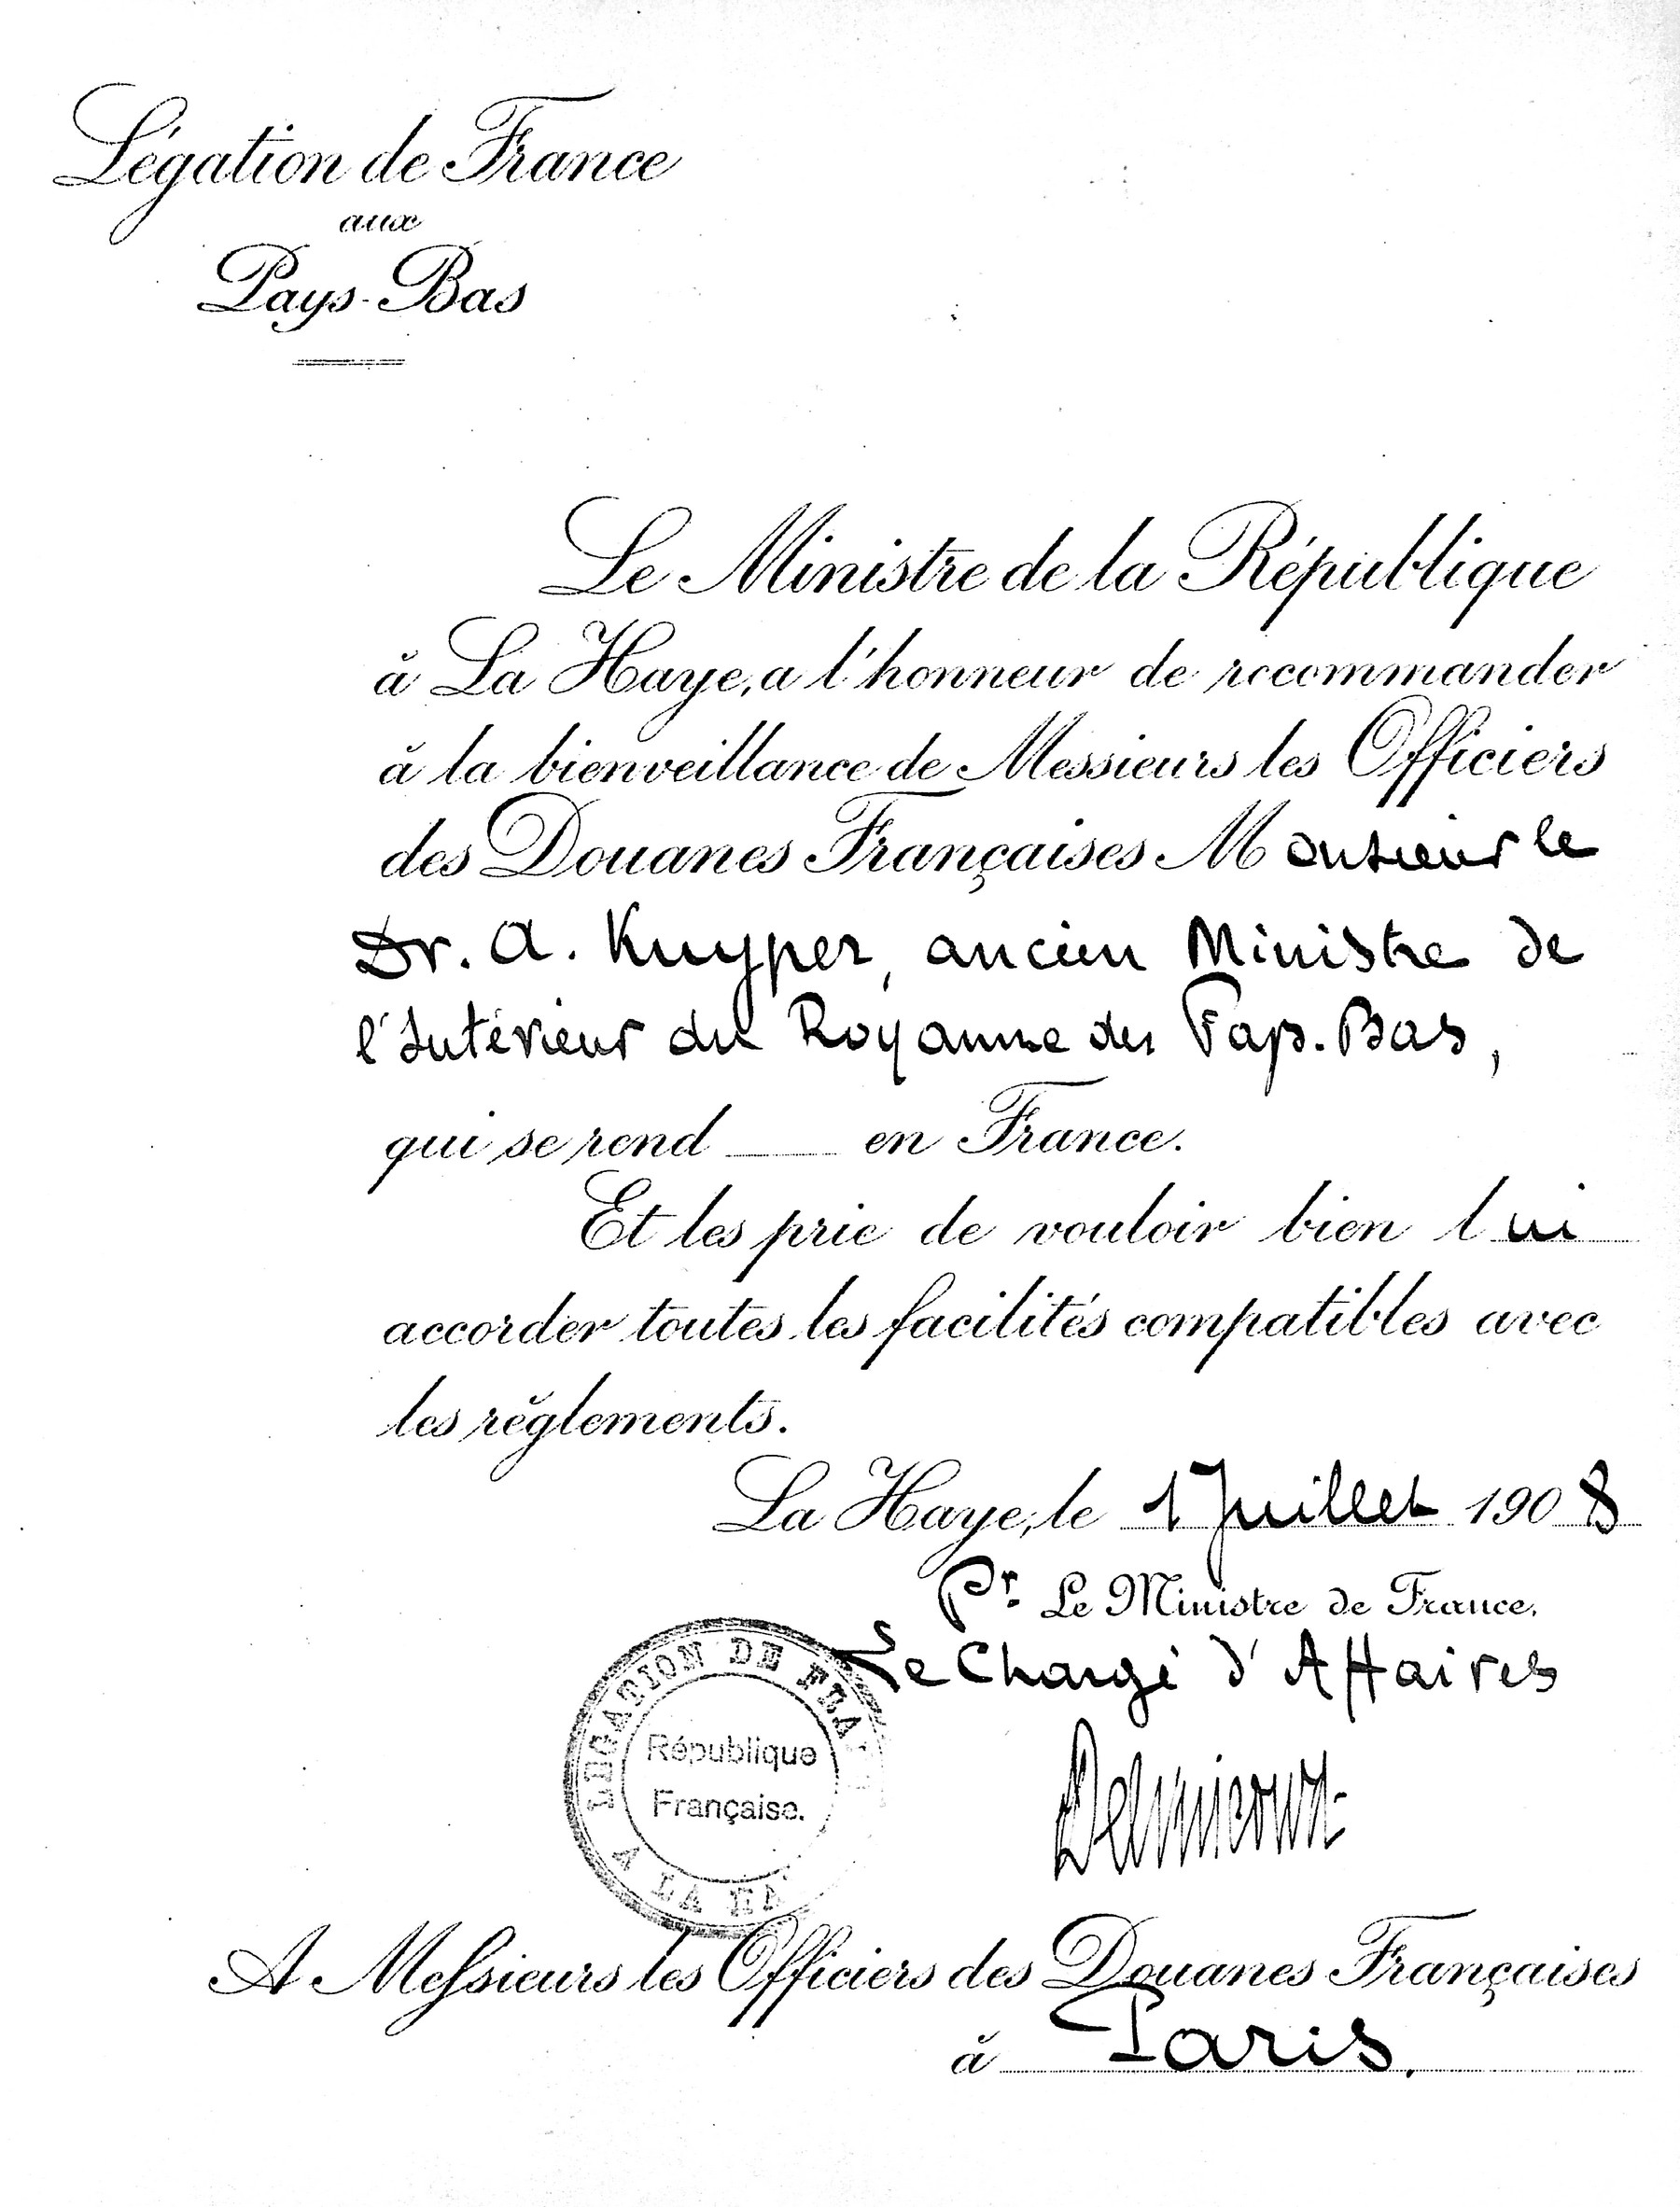 Légation de France
aux
Pays-Bas
Le Ministre de la République
à La Haye, a l'honneur de recommander
à la bienveillance de Messieurs les Officiers
des Douanes Françaises Monsieur le
Dr. A. Kuyper, ancien Ministre de
l'Intérieur du Royaume des Pays-Bas,
qui se rend en France.
Et les prie de vouloir bien lui
accorder toutes les facilités compatibles avec
les règlements.
La Haye, le 1 Juillet 1908
Pr. Le Ministre de France.
Le Chargé d'Affaires
LEGATION DE FRA
République
Française.
A LA HA
A Messieurs les Officiers des Douanes Françaises
à Paris.